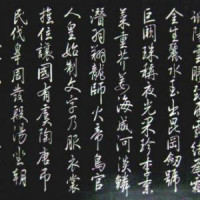 金生麗水玉出崑岡劍號
巨闕珠稱夜光果珍李柰
菜重芥薑海鹹河淡鱗
潛羽翔龍師火帝鳥官
人皇始制文字乃服衣裳
推位讓國有虞陶唐弔
民伐罪周發殷湯坐朝